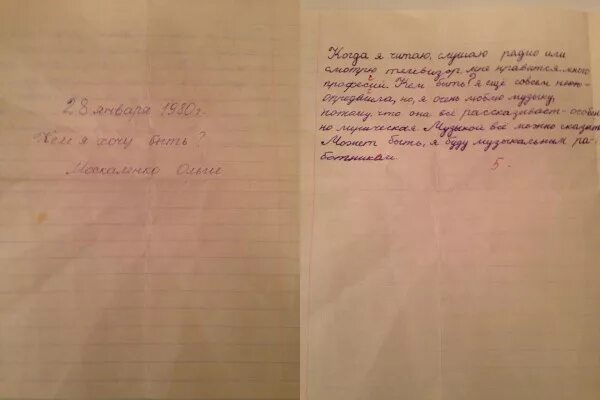 28 января 1980 г.
Кем я хочу быть?
Москаленко Ольги
Когда я читаю, слушаю радио или
смотрю телевизор, мне нравится много
профессий. Кем быть? я ещё совсем не
определила, но, я очень люблю музыку,
потому, что она всё рассказывает - особен
но лирическая. Музыкой всё можно сказать.
Может быть, я буду музыкальным ра-
ботником.
5.